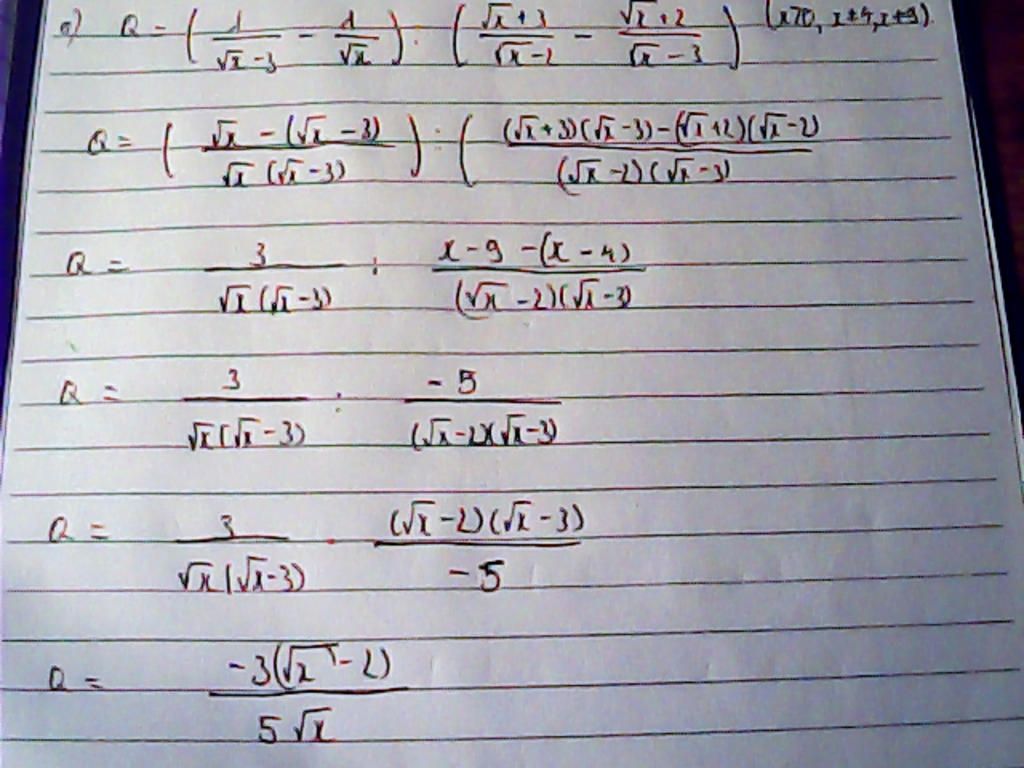 a) Q = ( 1/(√x - 3) - 1/√x ) : ( (√x + 3)/(√x - 2) - (√x + 2)/(√x - 3) ) (x>0, x≠4, x≠9).
Q = ( (√x - (√x - 3))/(√x (√x - 3)) ) : ( ((√x + 3)(√x - 3) - (√x + 2)(√x - 2))/((√x - 2)(√x - 3))
Q = 3/(√x (√x - 3)) : (x - 9 - (x - 4))/((√x - 2)(√x - 3))
Q = 3/(√x (√x - 3)) : -5/((√x - 2)(√x - 3))
Q = 3/(√x (√x - 3)) . ((√x - 2)(√x - 3))/-5
Q = -3(√x - 2)/(5√x)